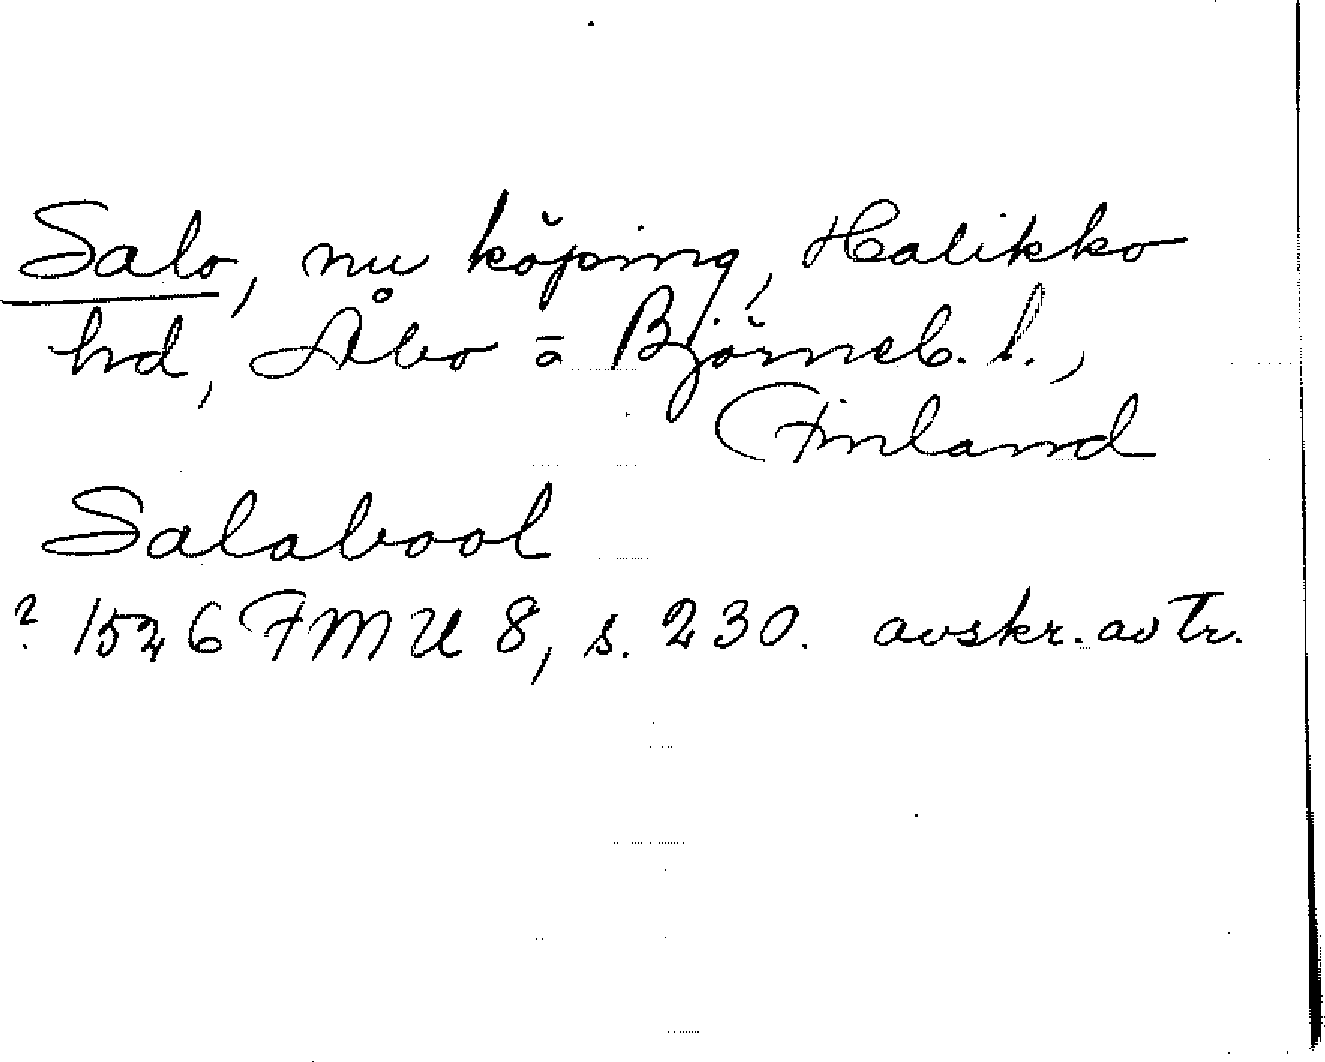 Salo, nu köping, Halikko
hd, Åbo = Björneb. l.,
Finland
Salabool
? 1526 FMU 8, s. 230. avskr. av Tr.